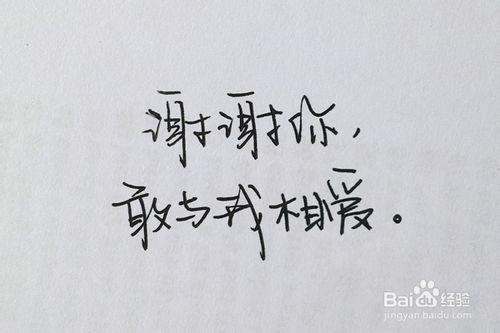 谢谢你，
敢与我相爱。
Baidu经验
jingyan.baidu.com